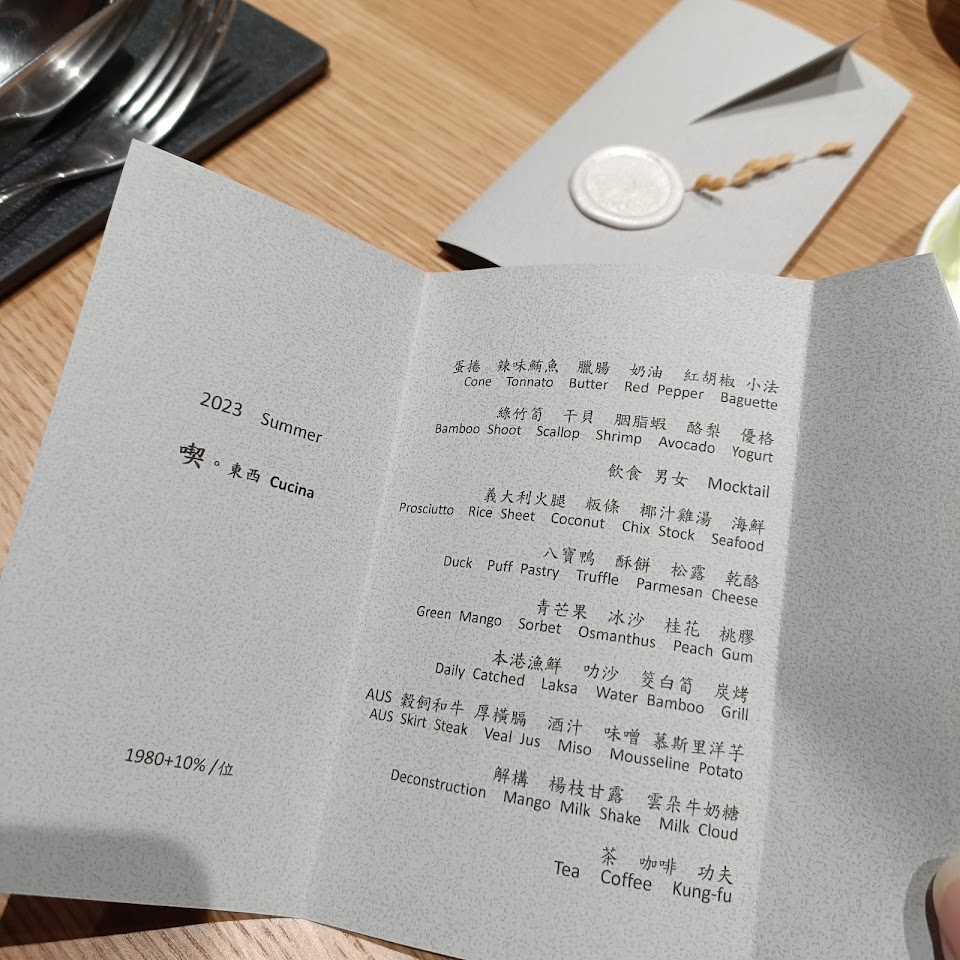 2023 Summer
喫。東西 Cucina
1980+10% /位
蛋捲 辣味鮪魚 臘腸 奶油 紅胡椒 小法
Cone Tonnato Butter Red Pepper Baguette
綠竹筍 干貝 胭脂蝦 酪梨 優格
Bamboo Shoot Scallop Shrimp Avocado Yogurt
飲食 男女 Mocktail
義大利火腿 粄條 椰汁雞湯 海鮮
Prosciutto Rice Sheet Coconut Chix Stock Seafood
八寶鴨 酥餅 松露 乾酪
Duck Puff Pastry Truffle Parmesan Cheese
青芒果 冰沙 桂花 桃膠
Green Mango Sorbet Osmanthus Peach Gum
本港漁鮮 叻沙 筊白筍 炭烤
Daily Catched Laksa Water Bamboo Grill
AUS 穀飼和牛 厚橫膈 酒汁 味噌 慕斯里洋芋
AUS Skirt Steak Veal Jus Miso Mousseline Potato
解構 楊枝甘露 雲朵牛奶糖
Deconstruction Mango Milk Shake Milk Cloud
茶 咖啡 功夫
Tea Coffee Kung-fu